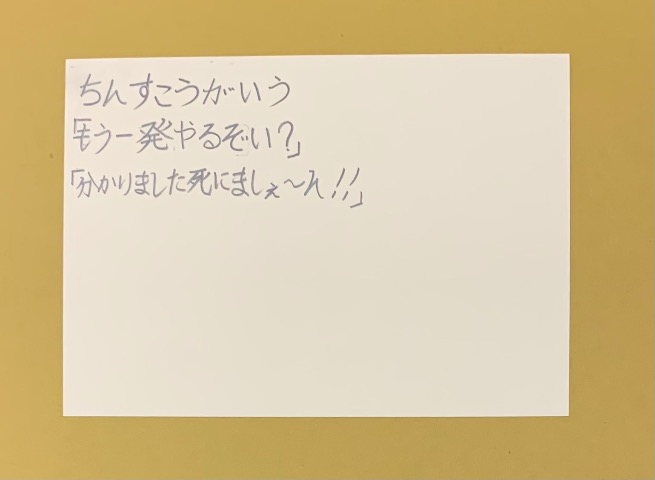 ちんすこうがいう
「もう一発やるぞい？」
「分かりました死にましぇ〜ん!!」